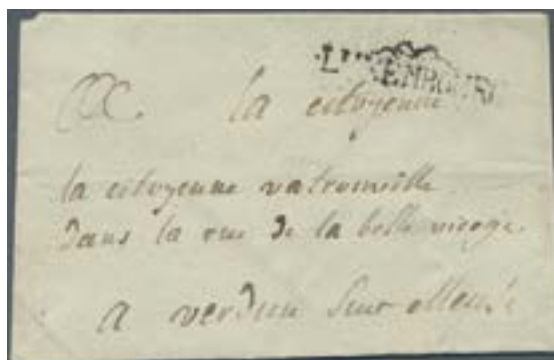 LUXEMBOURG
la citoyenne
la citoyenne vatronville
dans la rue de la belle vierge.
a verdun sur